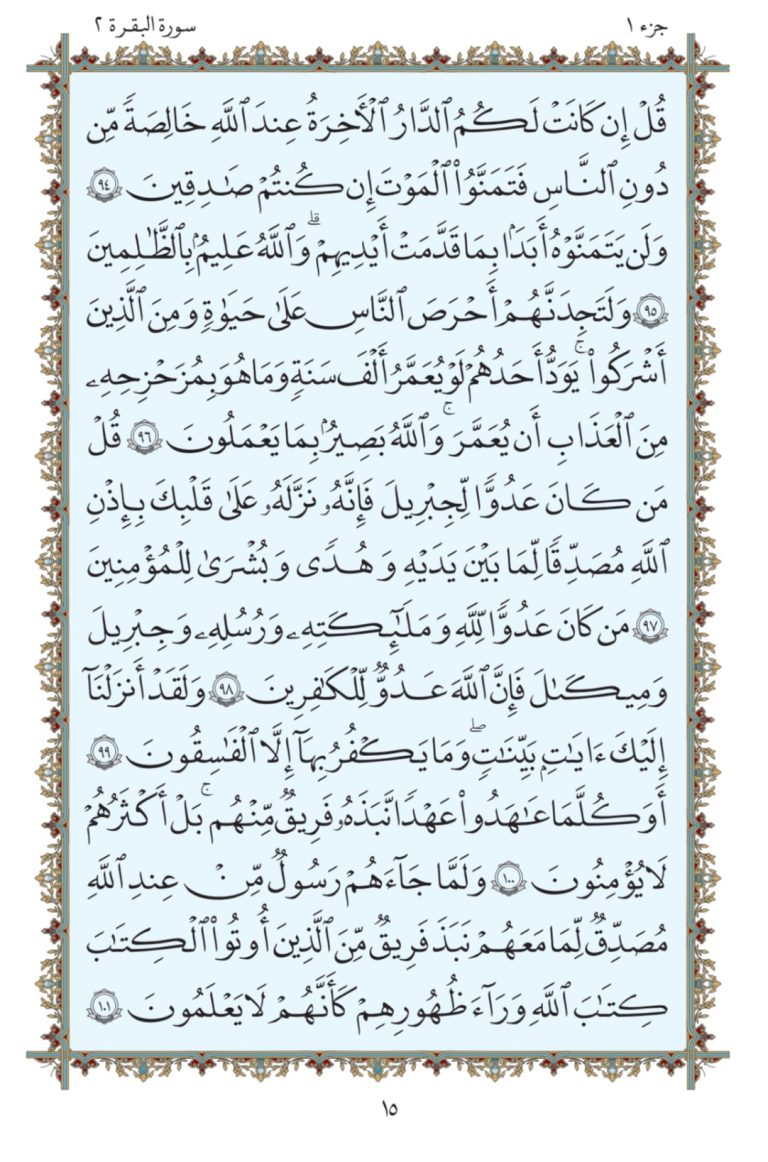 جزء ١
سورة البقرة ٢
قُلْ إِن كَانَتْ لَكُمُ ٱلدَّارُ ٱلْأَخِرَةُ عِندَ ٱللَّهِ خَالِصَةً مِّن
دُونِ ٱلنَّاسِ فَتَمَنَّوُا۟ ٱلْمَوْتَ إِن كُنتُمْ صَـٰدِقِينَ ٩٤
وَلَن يَتَمَنَّوْهُ أَبَدًۢا بِمَا قَدَّمَتْ أَيْدِيهِمْ ۗ وَٱللَّهُ عَلِيمٌۢ بِٱلظَّـٰلِمِينَ
٩٥ وَلَتَجِدَنَّهُمْ أَحْرَصَ ٱلنَّاسِ عَلَىٰ حَيَوٰةٍ وَمِنَ ٱلَّذِينَ
أَشْرَكُوا۟ ۚ يَوَدُّ أَحَدُهُمْ لَوْ يُعَمَّرُ أَلْفَ سَنَةٍ وَمَا هُوَ بِمُزَحْزِحِهِۦ
مِنَ ٱلْعَذَابِ أَن يُعَمَّرَ ۗ وَٱللَّهُ بَصِيرٌۢ بِمَا يَعْمَلُونَ ٩٦ قُلْ
مَن كَـانَ عَدُوًّا لِّجِبْرِيلَ فَإِنَّهُۥ نَزَّلَهُۥ عَلَىٰ قَلْبِكَ بِإِذْنِ
ٱللَّهِ مُصَدِّقًا لِّمَا بَيْنَ يَدَيْهِ وَهُدًى وَبُشْرَىٰ لِلْمُؤْمِنِينَ
٩٧ مَن كَانَ عَدُوًّا لِّلَّهِ وَمَلَـٰٓئِكَتِهِۦ وَرُسُلِهِۦ وَجِبْرِيلَ
وَمِيكَىٰلَ فَإِنَّ ٱللَّهَ عَدُوٌّ لِّلْكَـٰفِرِينَ ٩٨ وَلَقَدْ أَنزَلْنَآ
إِلَيْكَ ءَايَـٰتٍۭ بَيِّنَـٰتٍ ۖ وَمَا يَكْفُرُ بِهَآ إِلَّا ٱلْفَـٰسِقُونَ ٩٩
أَوَكُلَّمَا عَـٰهَدُوا۟ عَهْدًا نَّبَذَهُۥ فَرِيقٌ مِّنْهُم ۚ بَلْ أَكْثَرُهُمْ
لَا يُؤْمِنُونَ ١٠٠ وَلَمَّا جَآءَهُمْ رَسُولٌ مِّنْ عِندِ ٱللَّهِ
مُصَدِّقٌ لِّمَا مَعَهُمْ نَبَذَ فَرِيقٌ مِّنَ ٱلَّذِينَ أُوتُوا۟ ٱلْكِتَـٰبَ
كِتَـٰبَ ٱللَّهِ وَرَآءَ ظُهُورِهِمْ كَأَنَّهُمْ لَا يَعْلَمُونَ ١٠١
١٥